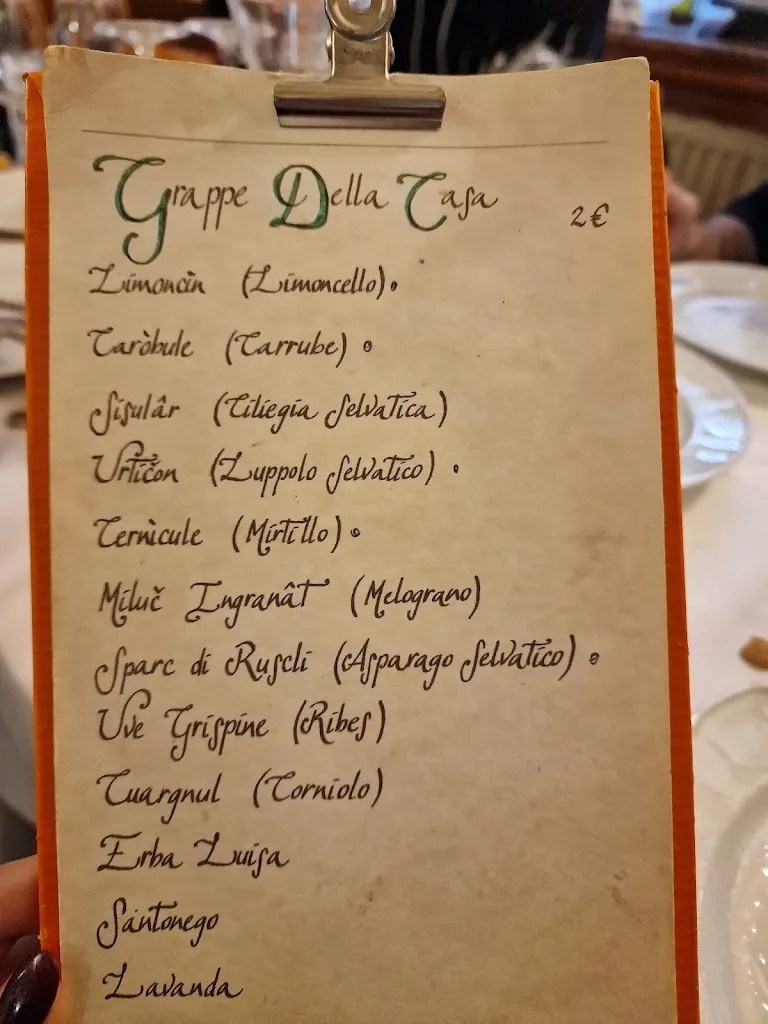 Grappe Della Casa 2€
Limoncin (Limoncello).
Caròbule (Carrube) •
Sisulâr (Ciliegia Selvatica)
Urtičon (Luppolo Selvatico) •
Cernìcule (Mirtillo) •
Miluč Ingranât (Melograno)
Sparc di Ruscli (Asparago Selvatico) •
Uve Grispine (Ribes)
Cuargnul (Corniolo)
Erba Luisa
Santonego
Lavanda